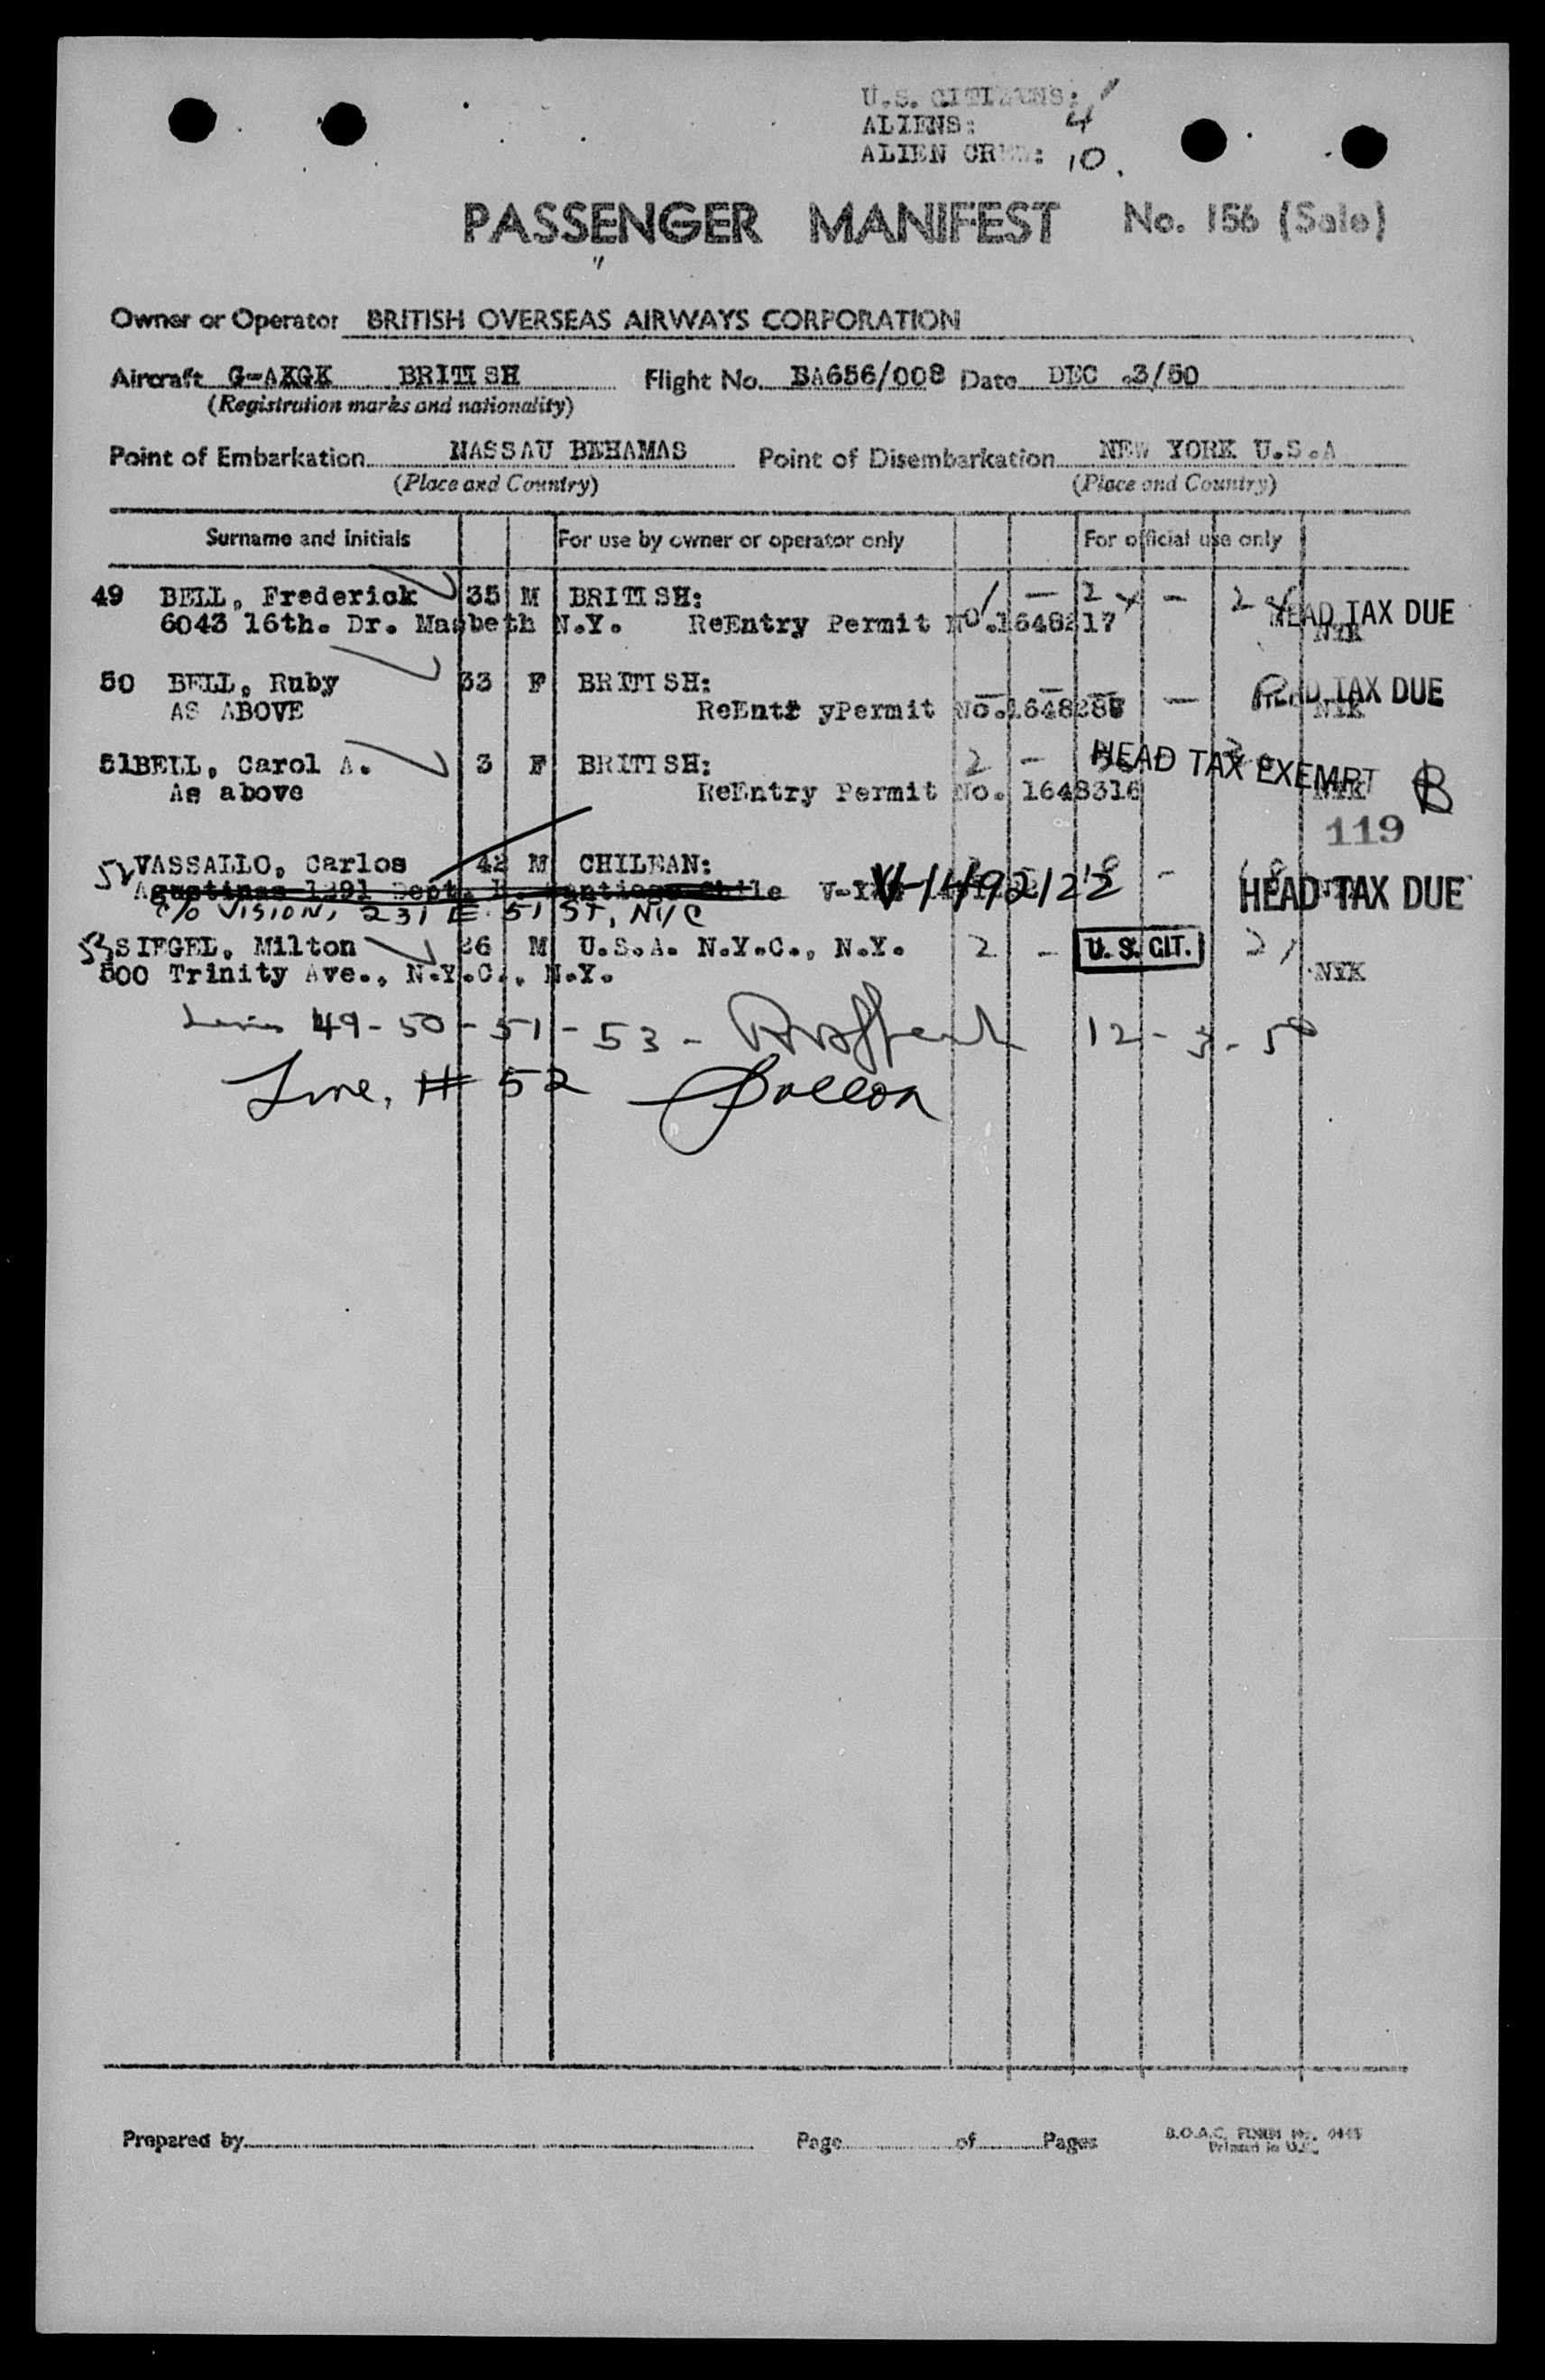 U.S. CITIZENS: 1
ALIENS: 4
ALIEN CREW: 10.
PASSENGER MANIFEST No. 156 (Sale)
"
Owner or Operator BRITISH OVERSEAS AIRWAYS CORPORATION
Aircraft G-AKGK BRITISH Flight No. BA656/008 Date DEC .3/50
(Registration marks and nationality)
Point of Embarkation NASSAU BEHAMAS Point of Disembarkation NEW YORK U.S.A
(Place and Country) (Place and Country)
Surname and initials For use by owner or operator only For official use only
49 BELL, Frederick 35 M BRITISH: 1 — 2 - 2 HEAD TAX DUE
6043 16th. Dr. Masbeth N.Y. ReEntry Permit No.1648217 NYK
50 BELL, Ruby 33 F BRITISH: — — — — HEAD TAX DUE
AS ABOVE ReEntr yPermit No.164828 NYK
51 BELL, Carol A. 3 F BRITISH: 2 - HEAD TAX EXEMPT
As above ReEntry Permit No. 1648316 NYK B
119
52 VASSALLO, Carlos 42 M CHILEAN:
Agustinas 1391 Dept. Santiago Chile V-1492122 - HEAD TAX DUE
c/o VISION, 231 E. 51 ST, NYC
53 SIEGEL, Milton 26 M U.S.A. N.Y.C., N.Y. 2 - U.S. CIT. 21
500 Trinity Ave., N.Y.C., N.Y. NYK
Lines 49-50-51-53- 12-3-50
Line, # 52
Prepared by Page of Pages B.O.A.C. FORM No.
Printed in U.K.